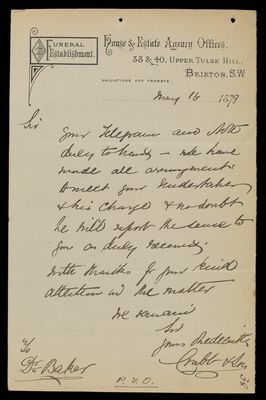 Funeral
Establishment.
House & Estate Agency Offices,
33 & 40, Upper Tulse Hill,
Brixton, S.W.
Valuations for Probate.
May 16 1879
Sir
Your Telegram and Note
duly to hand — we have
made all arrangements
to meet your Undertaker
& his charge & no doubt
he will report the same to
you on duly receiving
with thanks for your kind
attention in the matter
we remain
Sir
Yours Obediently
Crabb & Son
To
Dr Baker
P.T.O.